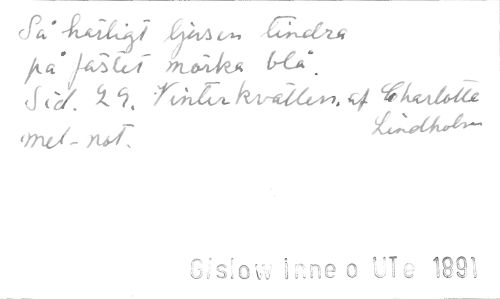 Så härligt ljusen tindra
på fästet mörka blå.
Sid. 29. Vinterkvällen, af Charlotte
Lindholm
mel-not.
Gislow Inne o UTe 1891